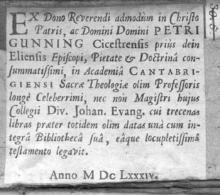 EX Dono Reverendi admodum in Christo
Patris, ac Domini Domini PETRI
GUNNING Cicestrensis priùs dein
Eliensis Episcopi, Pietate & Doctrinâ con-
summatissimi, in Academiâ CANTABRI-
GIENSI Sacræ Theologiæ olim Professoris
longè Celeberrimi, nec non Magistri hujus
Collegii Div. Johan. Evang. cui trecenas
libras præter totidem olim datas unà cum in-
tegrâ Bibliothecâ suâ, eâque locupletissimâ
testamento legavit.
Anno M Dc Lxxxiv.